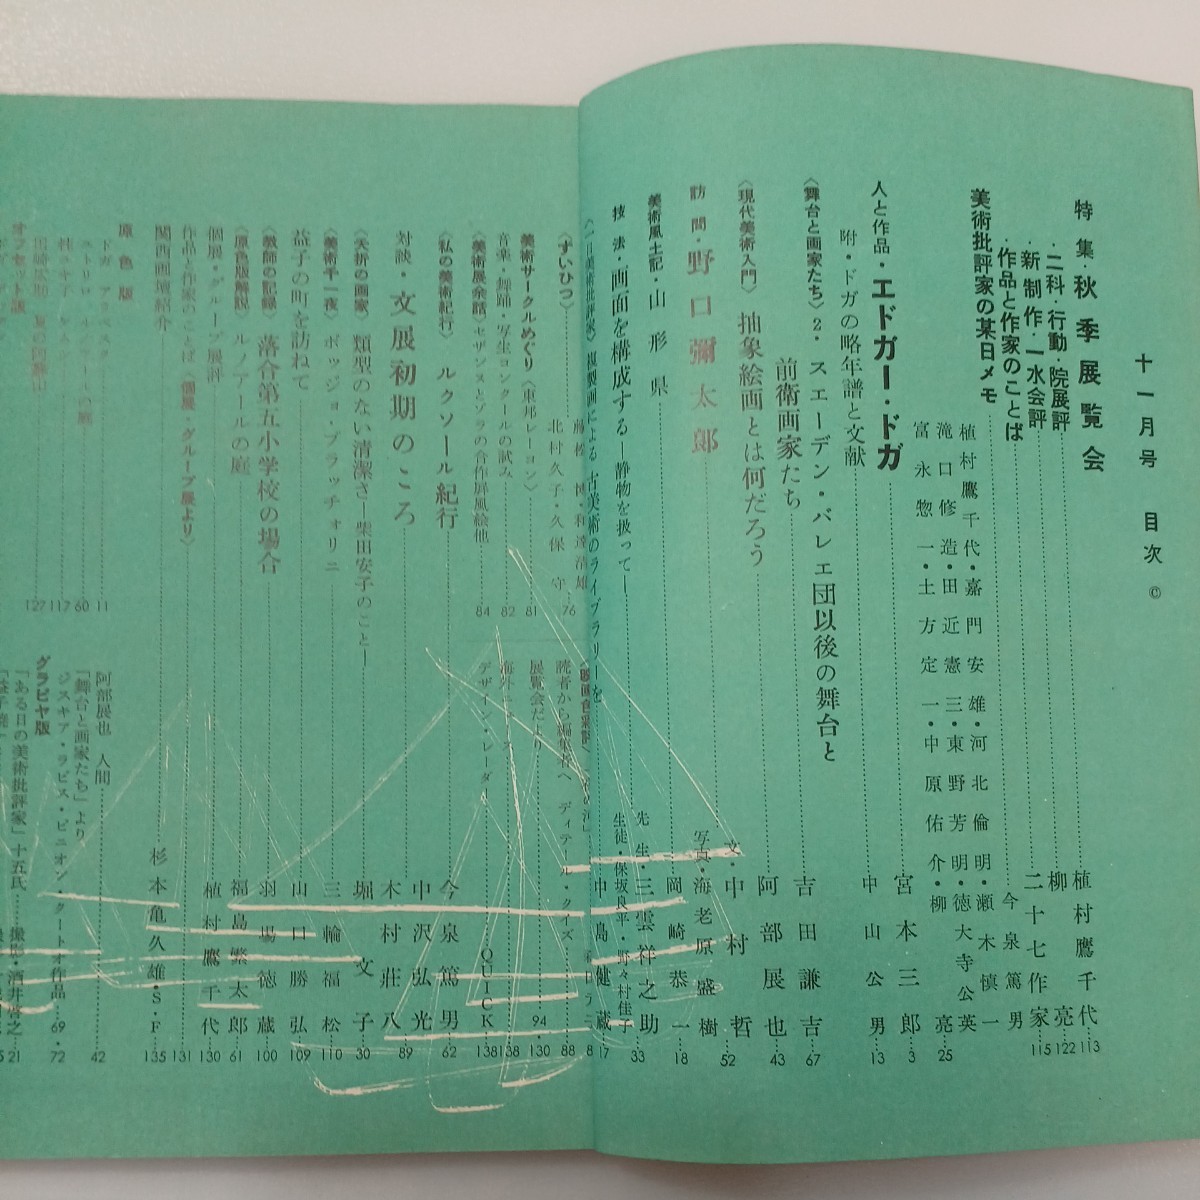 十一月号 目次 ©
特集・秋季展覧会
・二科・行動・院展評 植村鷹千代 113
・新制作・一水会評 柳亮 122
・作品と作家のことば 二十七作家 115
美術批評家の某日メモ 今泉篤男
植村鷹千代・嘉門安雄・河北倫明・瀬木慎一
滝口修造・田近憲三・東野芳明・徳大寺公英
富永惣一・土方定一・中原佑介・柳亮 25
人と作品・エドガー・ドガ 宮本三郎 3
附・ドガの略年譜と文献 中山公男 13
〈舞台と画家たち〉2・スエーデン・バレエ団以後の舞台と
前衛画家たち 吉田謙吉 67
〈現代美術入門〉抽象絵画とは何だろう 阿部展也 43
訪問・野口彌太郎 文・中村哲 52
写真・海老原盛樹
美術風土記・山形県 岡崎恭一 18
技法・画面を構成する―静物を扱って― 先生・三雲祥之助 33
生徒・保坂良平・野々村佳子
〈一日美術批評家〉複製画による古美術のライブラリーを 中島健蔵 17
〈ずいひつ〉 藤松博・和達清雄
北村久子・久保守 76
美術サークルめぐり〈東邦レーヨン〉 81
音楽・舞踊・写生コンクールの試み 82
〈美術展余話〉セザンヌとゾラの合作屏風絵他 84
読者から編集者へ ディテール・クイズ 88
展覧会だより 94 130
138
デザイン・レーダー QUICK 138
〈私の美術紀行〉ルクソール紀行 今泉篤男 62
対談・文展初期のころ 中沢弘光
木村荘八 89
〈夭折の画家〉類型のない清潔さ―柴田安子のこと― 堀文子 30
〈美術千一夜〉ポッジョ・ブラッチォリニ 三輪福松 110
益子の町を訪ねて 山口勝弘 109
〈教師の記録〉落合第五小学校の場合 羽場徳蔵 100
〈原色版解説〉ルノアールの庭 福島繁太郎 61
個展・グループ展評 植村鷹千代 130
作品と作家のことば〈個展・グループ展より〉 131
関西画壇紹介 杉本亀久雄・S・F 135
原色版
ドガ アラベスク 11
ユトリロ ルノアールの庭 60
桂ユキ子 117
田崎広助 127
阿部展也 人間 42
「舞台と画家たち」より
ジスキア・ラビス・ピニオン・クートオ作品 69・72
オフセット版
グラビヤ版
「ある日の美術批評家」十五氏 撮影・酒井啓之 21